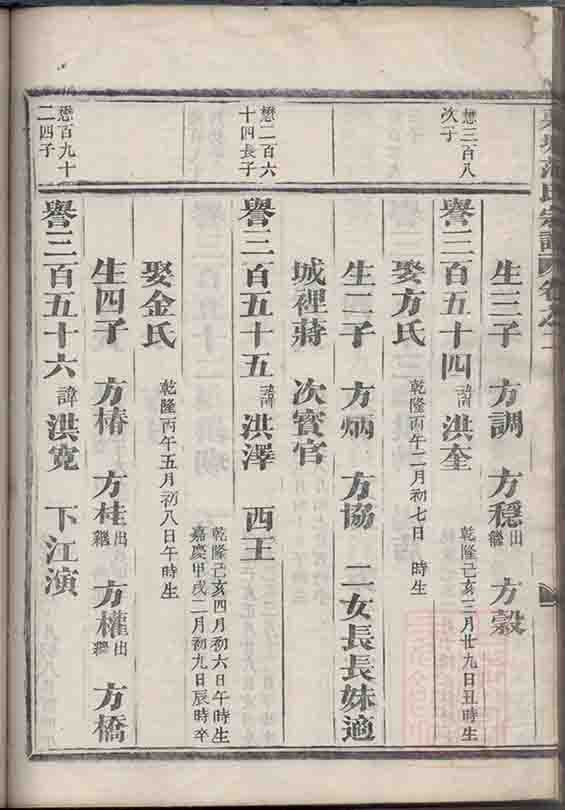 范氏宗譜 卷之二
生三子 方調 方穩出繼 方縠
懋三百八次子
譽三百五十四諱洪奎 乾隆己亥三月廿九日丑時生
娶方氏 乾隆丙午二月初七日 時生
生二子 方炳 方協 二女長長妹適
城裡蔣 次賓官
懋二百六十四長子
譽三百五十五諱洪澤 西王 乾隆己亥四月初六日午時生
嘉慶甲戌二月初九日辰時卒
娶金氏 乾隆丙午五月初八日午時生
生四子 方椿 方桂出繼 方權出繼 方橋
懋百九十二四子
譽三百五十六諱洪寬 下江演